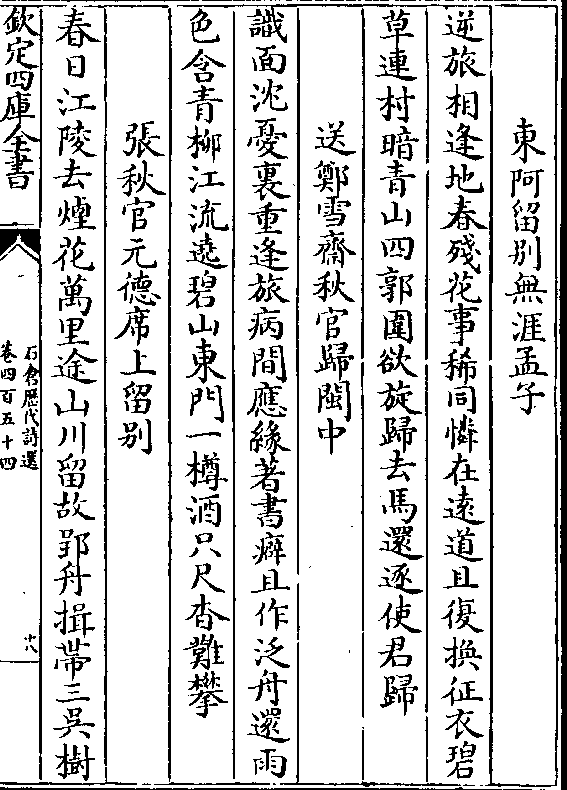 東阿留别無涯孟子
逆旅相逢地春殘花事稀同憐在逺道且復換征衣碧
草連村暗青山四郭圍欲旋歸去馬還逐使君歸
送鄭雪齋秋官歸閩中
識面沈憂裏重逢旅病間應緣著書癖且作泛舟還雨
色含青柳江流遶碧山東門一樽酒只尺杳難攀
張秋官元德席上留别
春日江陵去煙花萬里途山川留故郢舟揖帶三吳樹
欽定四庫全書
石倉歴代詩選
卷四百五十四
十八